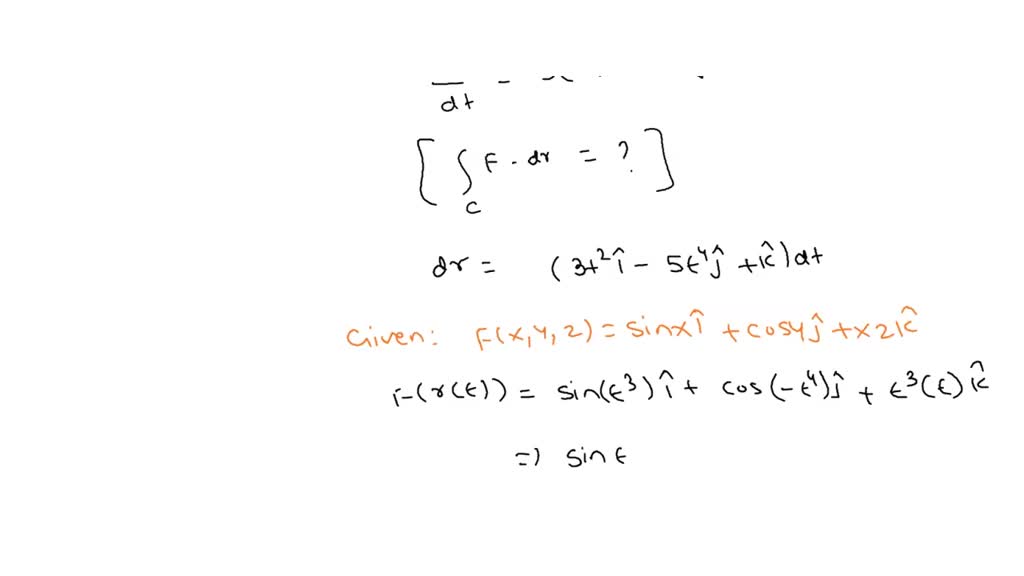 dt
[ ∫_C F · dr = ? ]
dr = (3t² î − 5t⁴ ĵ + k̂) dt
Given: F(x,y,z) = sinx î + cosy ĵ + xz k̂
F(r(t)) = sin(t³) î + cos(−t⁴) ĵ + t³(t) k̂
=) sin t